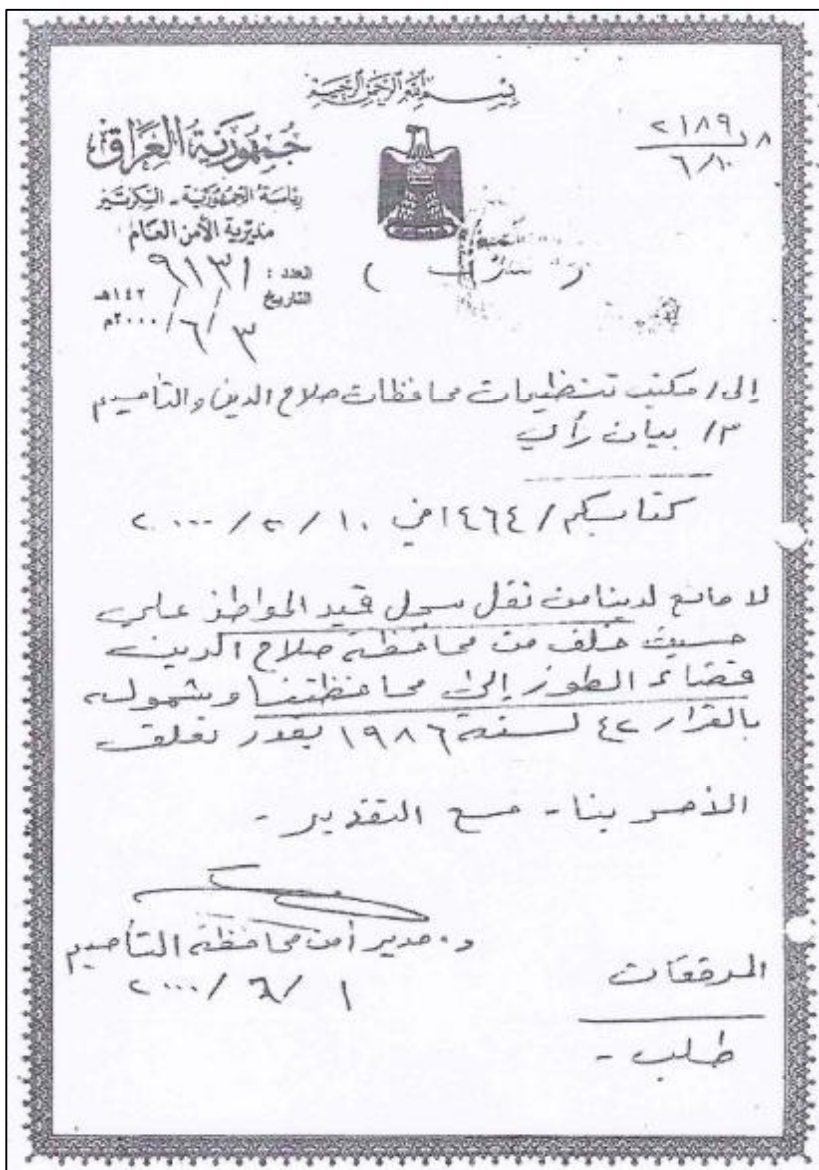 بسم الله الرحمن الرحيم
جمهورية العراق
رئاسة الجمهورية - السكرتير
مديرية الأمن العام
العدد : ٩١٣١
التاريخ / / ١٤٢هـ
٣ / ٦ / ٢٠٠٠م
٢١٨٩
٦/١٠
إلى / مكتب تنظيمات محافظات صلاح الدين والتأميم
م / بيان رأي
كتابكم / ١٤٦٤ في ١٠ / ٢ / ٢٠٠٠
لا مانع لدينا من نقل سجل قيد المواطن علي
حسين خلف من محافظة صلاح الدين
قضاء الطوز إلى محافظتنا وشموله
بالقرار ٤٢ لسنة ١٩٨٦ بقدر تعلق
الأمر بنا - مع التقدير -
و. مدير أمن محافظة التأميم
١ / ٦ / ٢٠٠٠
المرفقات
طلب -